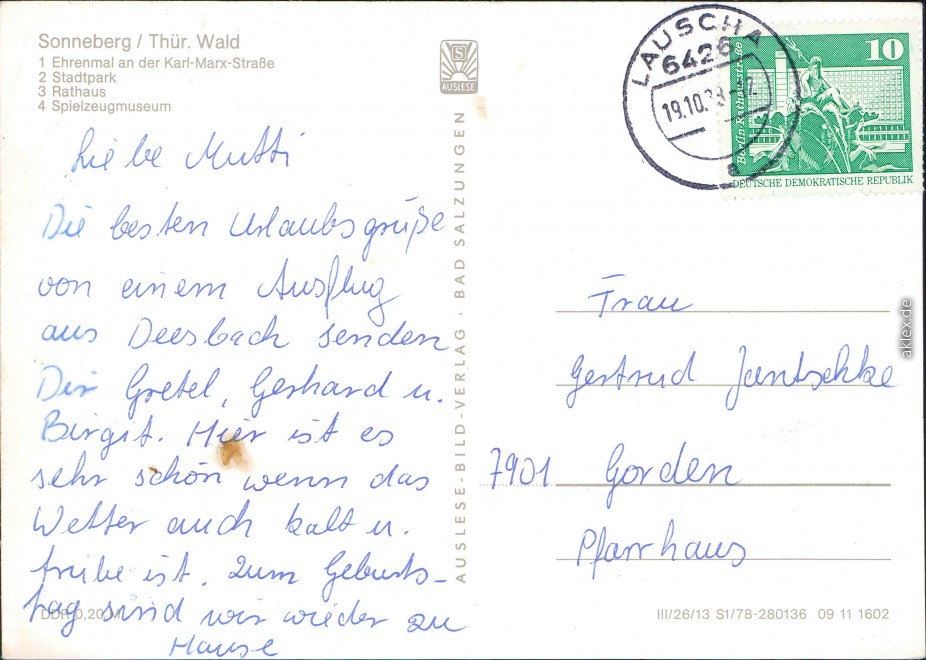 Sonneberg / Thür. Wald
1 Ehrenmal an der Karl-Marx-Straße
2 Stadtpark
3 Rathaus
4 Spielzeugmuseum
Liebe Mutti
Die besten Urlaubsgrüße
von einem Ausflug
aus Deesbach senden
Dir Gretel, Gerhard u.
Birgit. Hier ist es
sehr schön wenn das
Wetter auch kalt u.
trübe ist. Zum Geburts-
tag sind wir wieder zu
Hause
DDR 0,20 M
S
AUSLESE
AUSLESE-BILD-VERLAG · BAD SALZUNGEN
LAUSCHA
6426
19.10.
a
10
Berlin-Rathausstraße
DEUTSCHE DEMOKRATISCHE REPUBLIK
Frau
Gertrud Jantschke
7901 Gorden
Pfarrhaus
III/26/13 S1/78-280136 09 11 1602
aklex.de